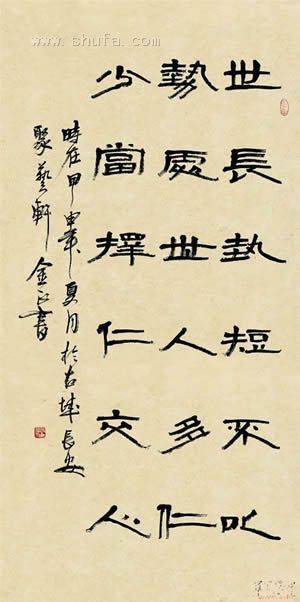 www.shufa.com
世長埶短不以
勢處世人多仁
少當擇仁交心
時在甲申年夏月於古城長安
聚藝軒金書